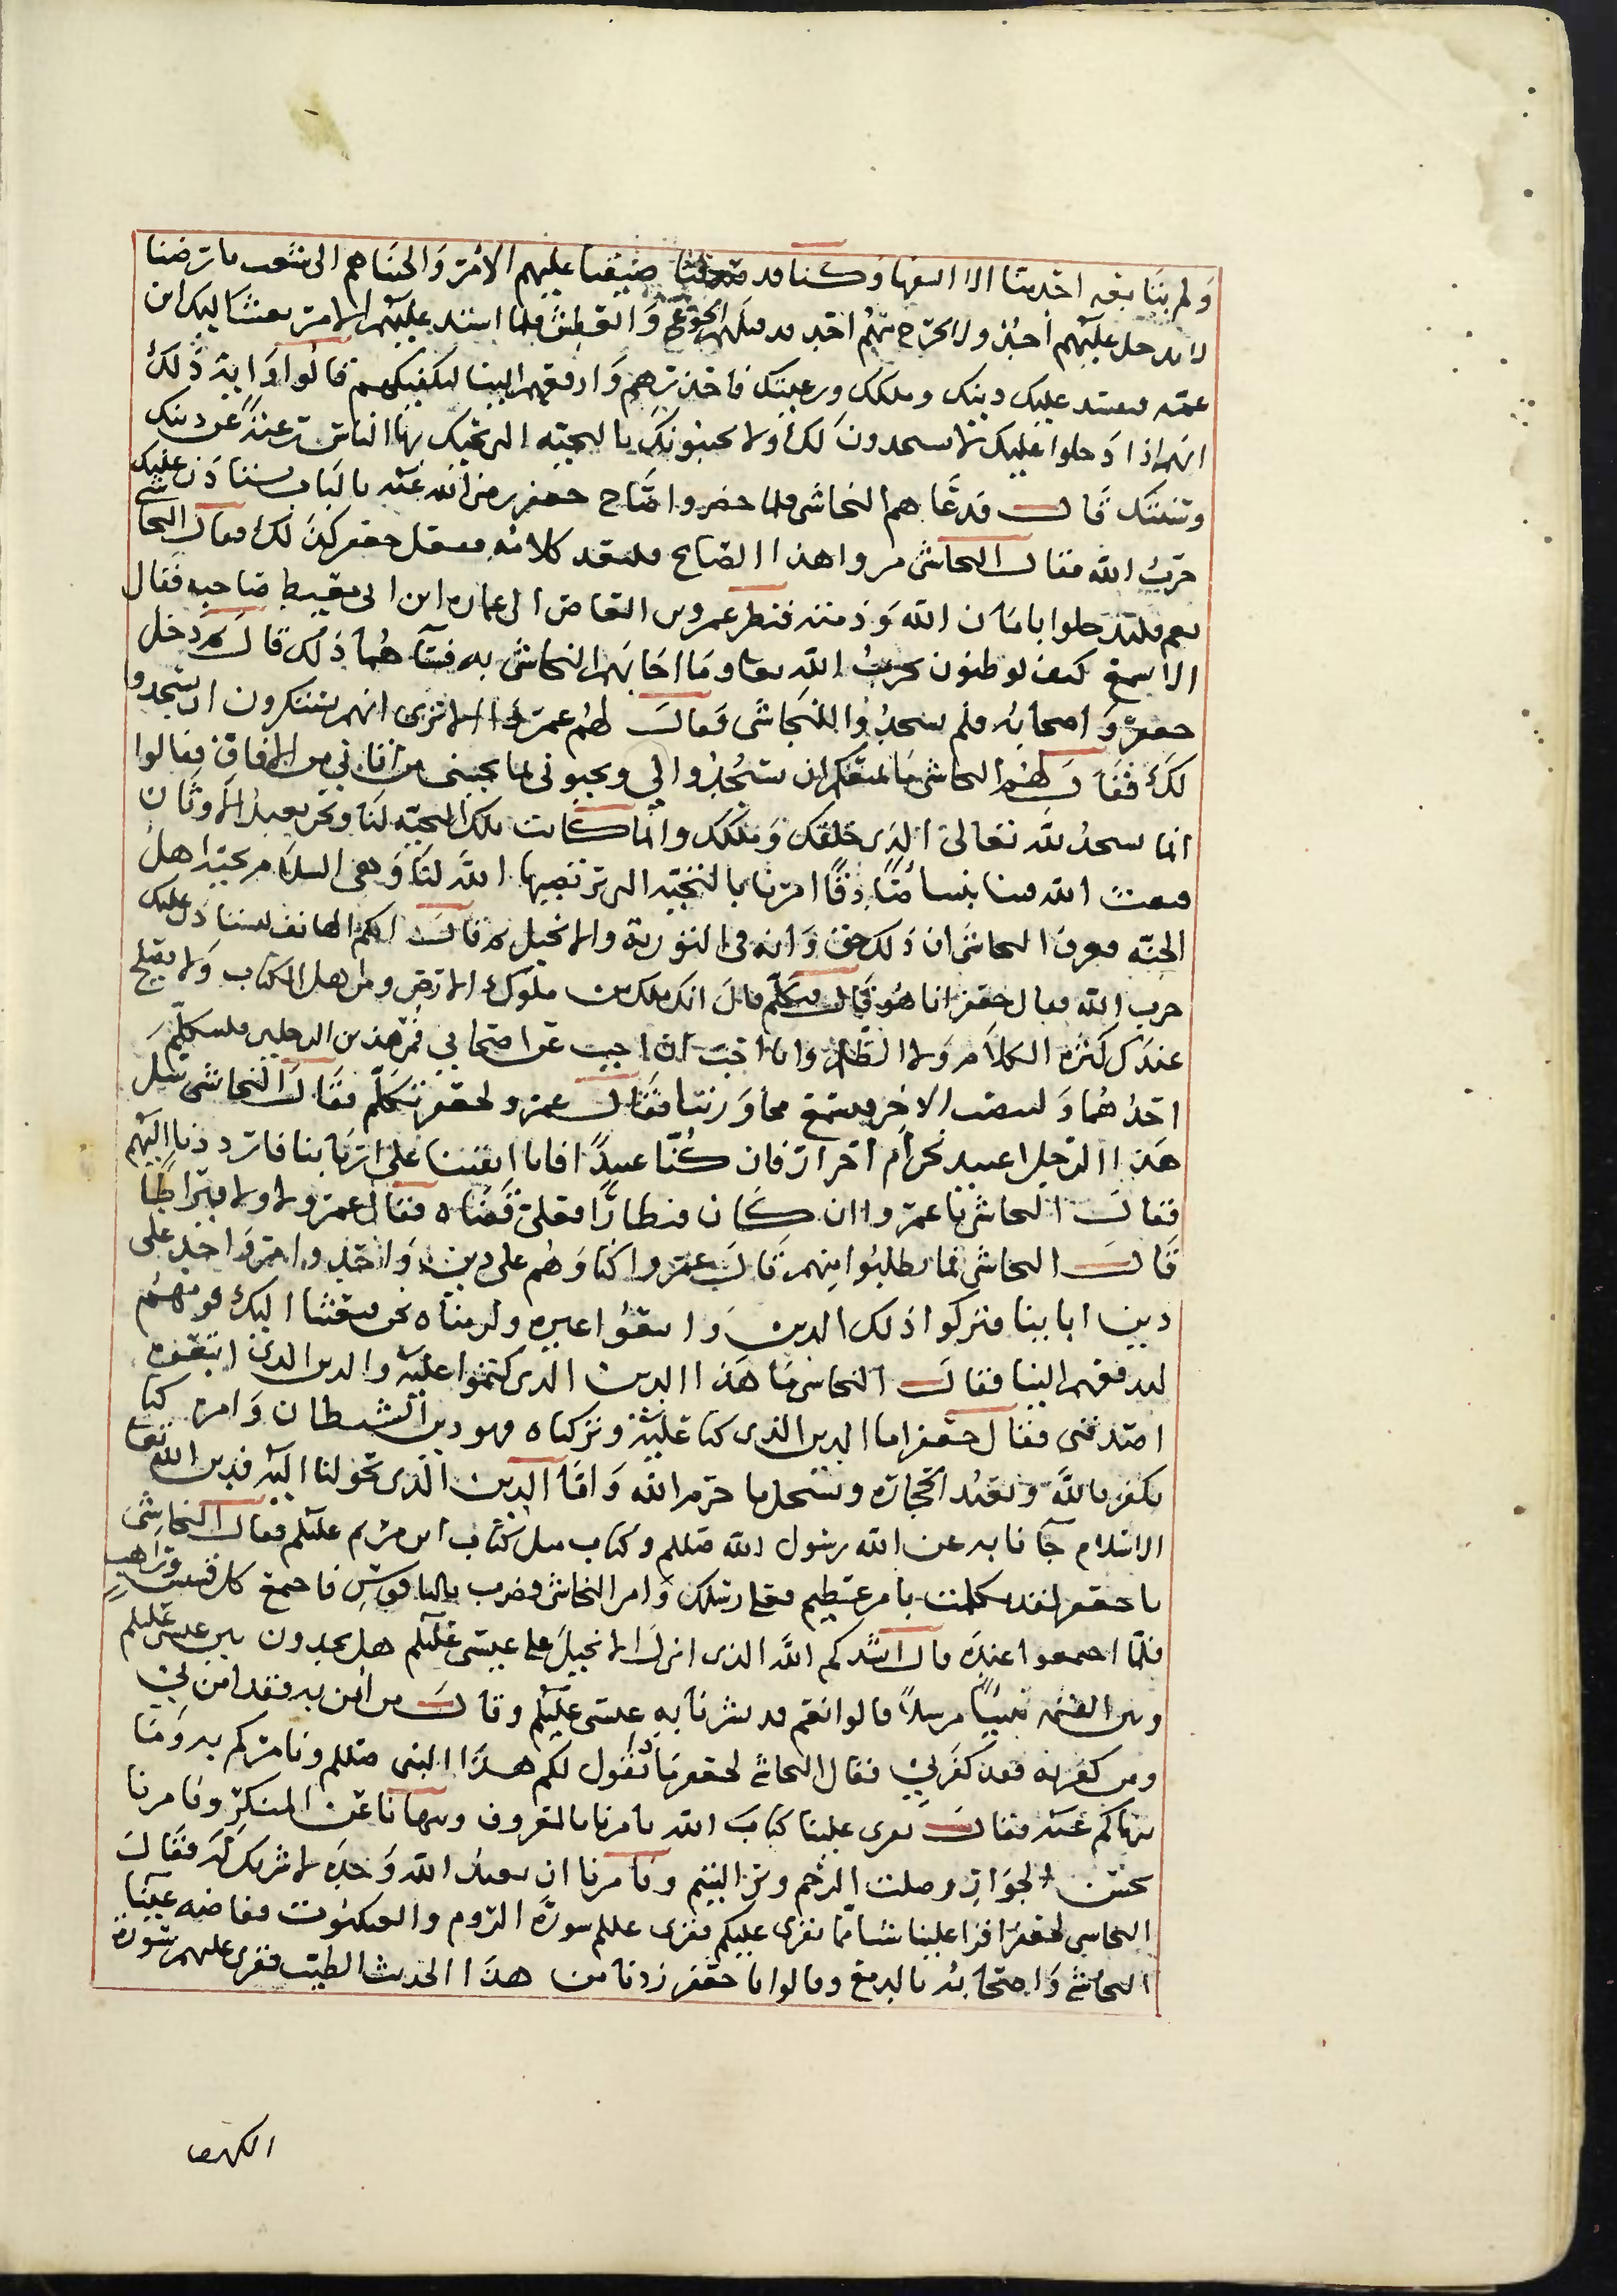 ولم يتابعه احد منا الا السفها وكنا قد ضيقنا عليهم الامر والجناهم الى شعب بارضنا
لا يدخل عليهم احد ولا يخرج منهم احد قد قتلهم الجوع والعطش فلما اشتد عليهم الامر بعث اليك ابن
عمه ليفسد عليك دينك وملكك ورعيتك فاحذرهم وادفعهم الينا لنكفيكهم قالوا واية ذلك
انهم اذا دخلوا عليك لا يسجدون لك ولا يحيونك بالتحية التي يحييك بها الناس رغبة عن دينك
وسنتك قال فدعاهم النجاشى فلما حضروا صاح جعفر رضى الله عنه بالباب يستاذن عليك
حزب الله فقال النجاشى مروا هذا الصايح فليعد كلامه ففعل جعفر كذلك فقال النجاشى
نعم فليدخلوا بامان الله وذمته فنظر عمرو بن العاص الى عماره ابن ابى معيط صاحبه فقال
الا تسمع كيف يرطنون بحزب الله تعا وما اجابهم النجاشى به فساهما ذلك قال ثم دخل
جعفر واصحابه فلم يسجدوا للنجاشى فقال لهم عمرو الا ترى انهم يستكبرون ان يسجدوا
لك فقال لهم النجاشى ما منعكم ان تسجدوا لي وتحيونى بما يحيينى من اتانى من الافاق فقالوا
انما نسجد لله تعالى الذى خلقك وملكك وانما كانت تلك التحية لنا ونحن نعبد الاوثان
فبعث الله فينا نبيا صادقا امرنا بالتحية التى ترتضيها الله لنا وهى السلام تحية اهل
الجنه فعرف النجاشى ان ذلك حق وانه فى التورية والانجيل ثم قال ايكم الهاتف يستاذن عليك
حزب الله فقال جعفر انا هو قال فتكلم قال انك ملك من ملوك الارض ومن اهل الكتاب ولا يصلح
عندك كثرة الكلام ولا الظلم وانا احب ان اجيب عن اصحابي فمر هذين الرجلين فليتكلم
احدهما ولينصت الاخر فيسمع محاورتنا فقال عمرو لجعفر تكلم فقال للنجاشى سل
هذا الرجل اعبيد نحن ام احرار فان كنا عبيدا قد ابقنا على اربابنا فارددنا اليهم
فقال النجاشى يا عمرو ان كان قنطارا فعلى قضاه فقال عمرو لا ولا قيراطا
قال النجاشى فما تطلبوا منهم قال عمرو كنا وهم على دين واحد وامر واحد على
دين ابابينا فتركوا ذلك الدين واتبعوا غيره ولزمناه نحن فبعثنا اليك قومهم
لتدفعهم الينا فقال النجاشى ما هذا الدين الذى كنتموا عليه والدين الذى اتبعتموه
اصدقنى فقال جعفر اما الدين الذى كنا عليه وتركناه فهو دين الشيطان وامره كنا
نكفر بالله ونعبد الحجاره ونستحل ما حرم الله واما الدين الذى تحولنا اليه فدين الله تعا
الاسلام جآنا به عن الله رسول الله صللم وكتاب مثل كتاب ابن مريم عليلم فقال النجاشى
يا جعفر لقد تكلمت بامر عظيم فعلى رسلك وامر النجاشى فضرب بالناقوس فاجمع كل قسيس وراهب
فلما اجمعوا عنده قال انشدكم الله الذى انزل الانجيل على عيسى عليلم هل تجدون بين عيسى عليلم
وبين القيمه نبيا مرسلا قالوا نعم قد بشرنا به عيسى عليلم وقال من امن به فقد امن بي
ومن كفر به فقد كفر بي فقال النجاشى لجعفر ماذا تقول لكم هذا النبى صللم ونامركم به وما
ينهاكم عنه فقال يقرى علينا كتاب الله يامرنا بالمعروف وينهانا عن المنكر ويامرنا
بحسن الجوار وصلت الرحم وبر اليتيم ويامرنا ان نعبد الله وحده لا شريك له فقال
النجاشى لجعفر اقرا علينا شيا مما يقرى عليكم فقرى عليلم سورة الروم والعنكبوت ففاضه عينا
النجاشى واصحابه بالدمع وقالوا يا جعفر زدنا من هذا الحديث الطيب فقرى عليهم سورة
الكهف